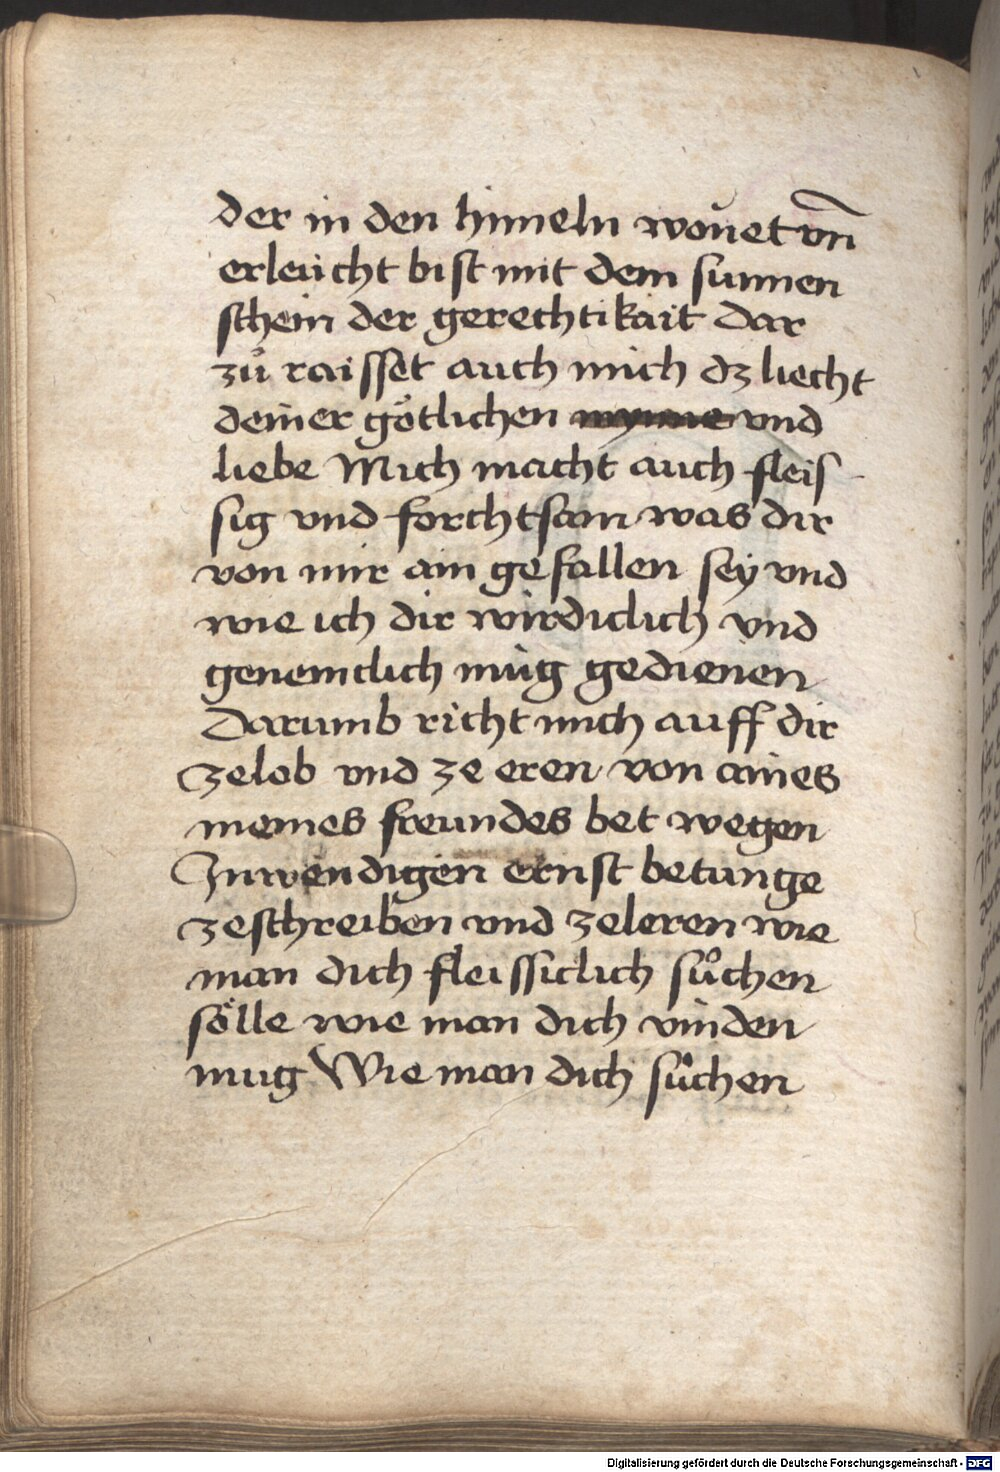 der in den himeln wonet vnd
erleücht bist mit dem sunnen
schein der gerechtikait Dar
zů raisset auch mich dz liecht
deiner götlichen mynne vnd
liebe Mich macht auch fleis
sig vnd forchtsam was dir
von mir ain gefallen sey vnd
wie ich dir wirdiclich vnd
genemclich müg gedienen
Darumb richt mich auff dir
ze lob vnd ze eren von aines
meines freundes bet wegen
Inwendigen ernst betunge
ze schreiben vnd ze leren wie
man dich fleissiclich sůchen
sölle wie man dich vinden
mug Wie man dich sůchen
Digitalisierung gefördert durch die Deutsche Forschungsgemeinschaft - DFG